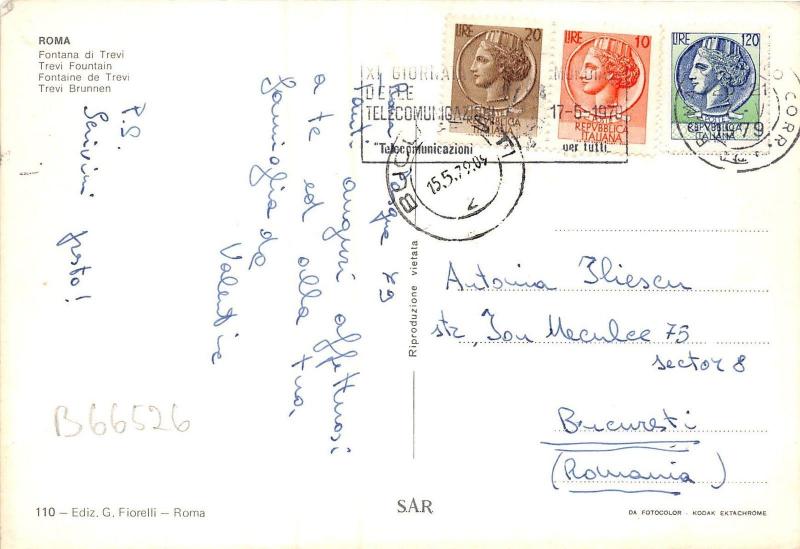 ROMA
Fontana di Trevi
Trevi Fountain
Fontaine de Trevi
Trevi Brunnen
LIRE 20
REPVBBLICA
ITALIANA
LIRE 10
REPVBBLICA
ITALIANA
LIRE 120
REPVBBLICA
ITALIANA
XI GIORNATA MONDIALE
DELLE
TELECOMUNICAZIONI
17-5-1979
"Telecomunicazioni
per tutti
CORR.
79
15.5.79.09
7
Pasqua 79
tanti auguri affettuosi
a te ed alla tua
famiglia da
Valentine
P.S.
Scrivimi presto!
Antonia Iliescu
str. Ion Maculce 75
sector 8
Bucuresti
(Romania)
Riproduzione vietata
B66526
110 – Ediz. G. Fiorelli – Roma
SAR
DA FOTOCOLOR - KODAK EKTACHROME